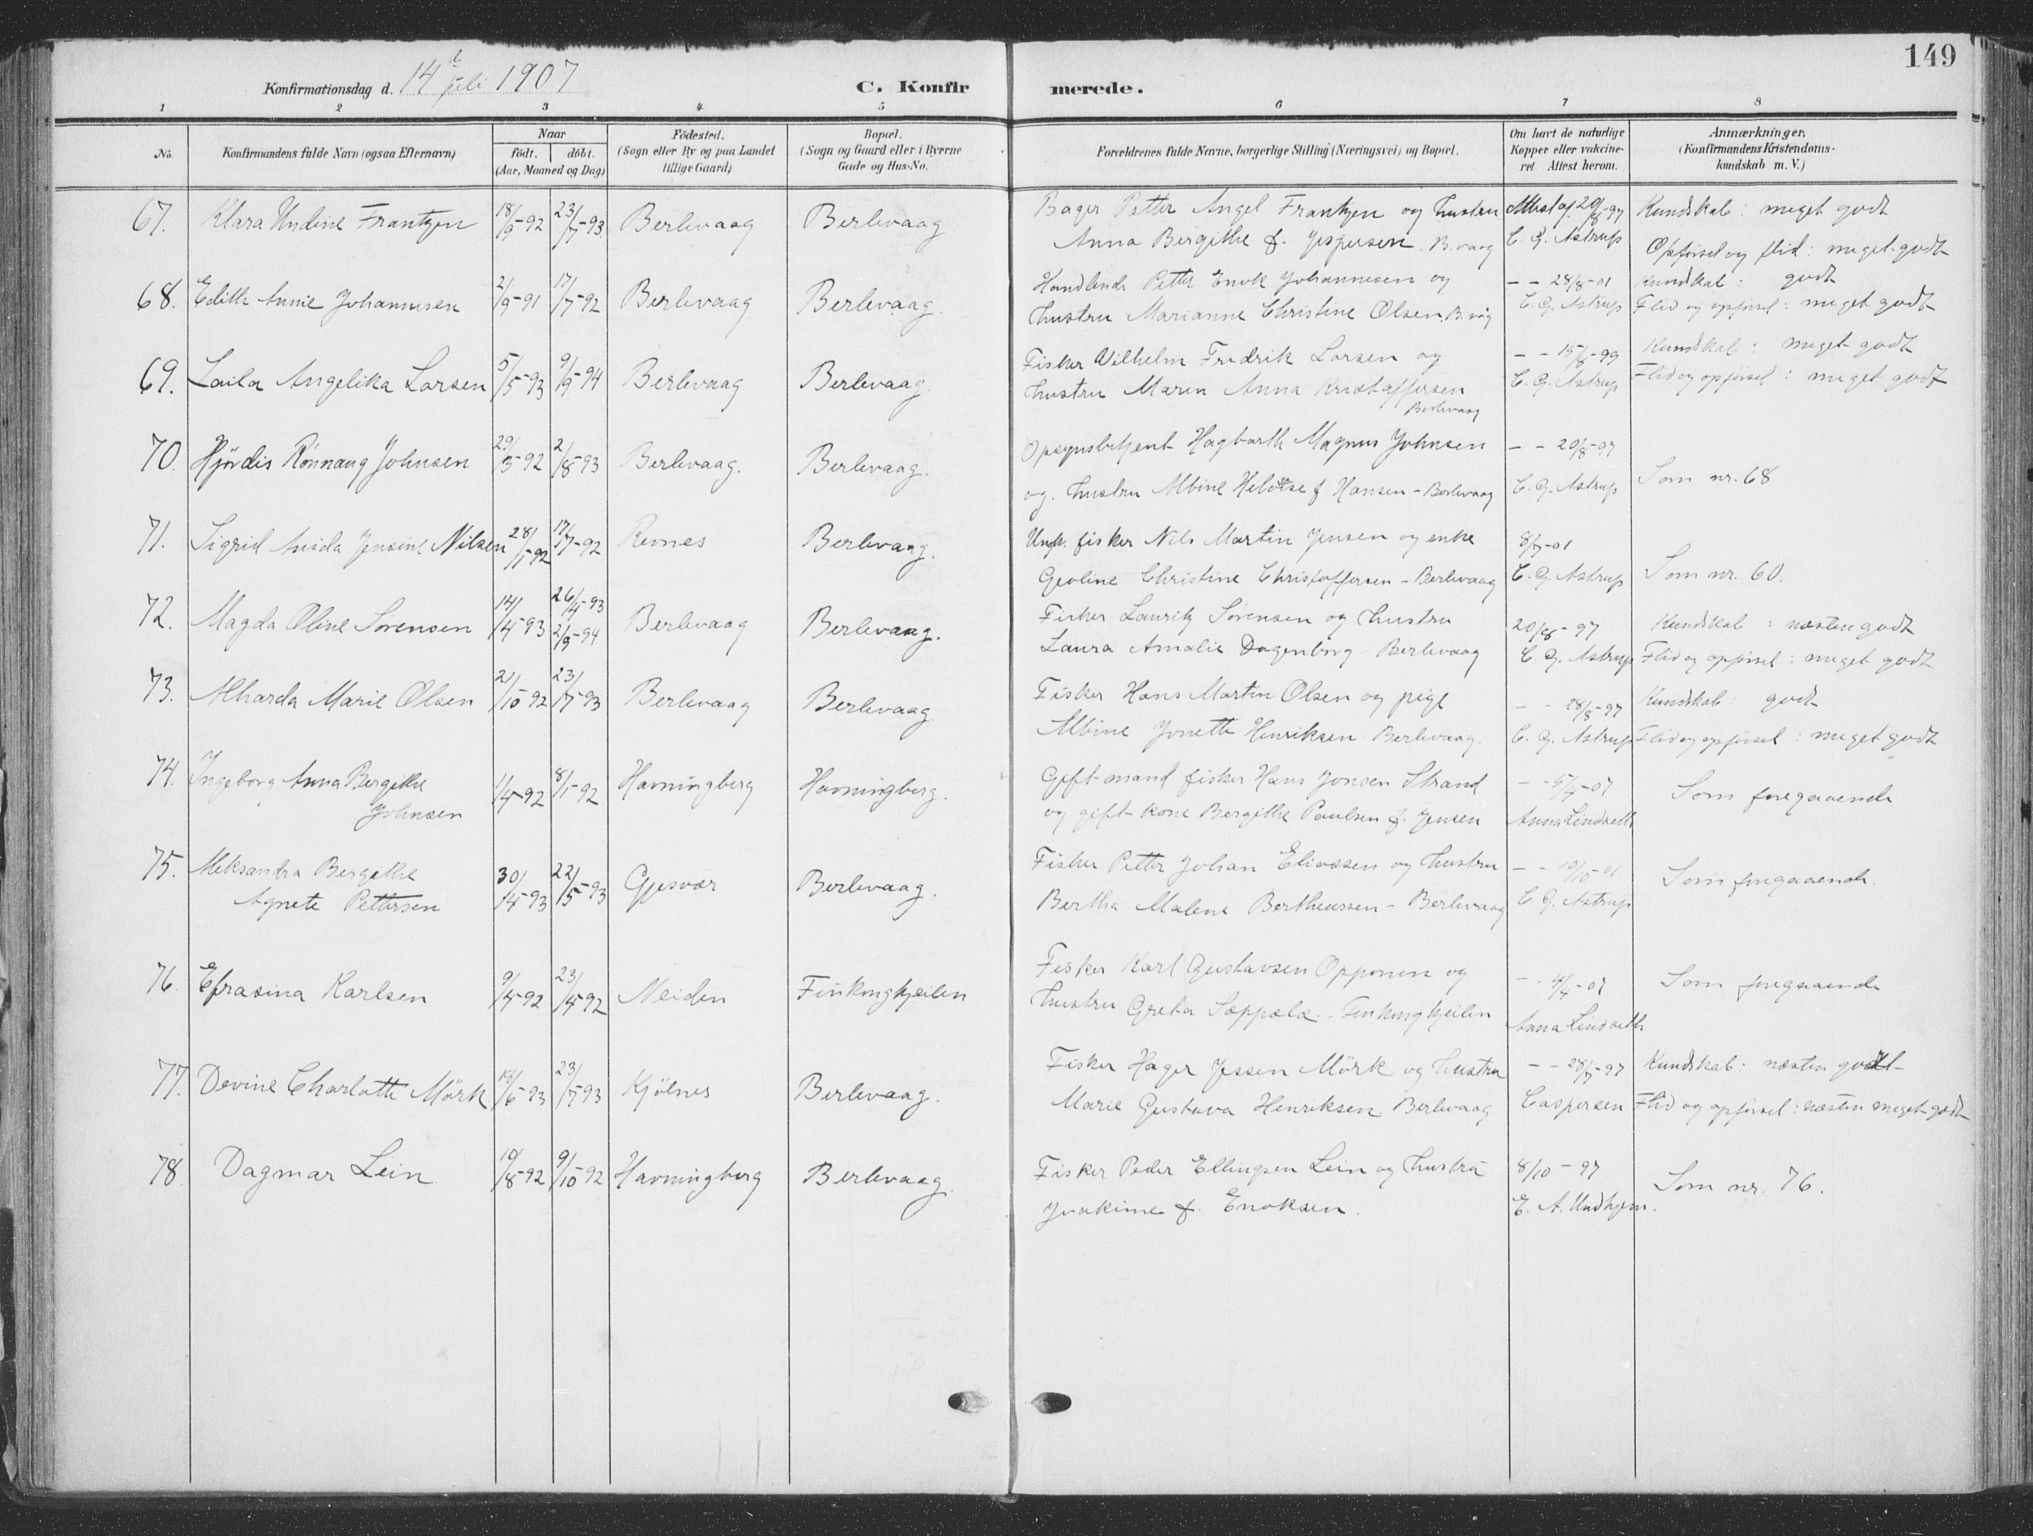 149
Konfirmationsdag d. 14de juli 1907 C. Konfir merede.
1 2 3 4 5 6 7 8
No. Konfirmandens fulde Navn (ogsaa Efternavn) Naar Födested. Bopæl. Forældrenes fulde Navne, borgerlige Stilling (Næringsvei) og Bopæl. Om havt de naturlige Anmærkninger.
födt. döbt. (Sogn eller By og paa Landet (Sogn og Gaard eller i Byerne Kopper eller vakcine- (Konfirmandens Kristendoms-
(Aar, Maaned og Dag) tillige Gaard) Gade og Hus-No. ret Attest herom. kundskab m. V.)
67. Klara Undine Frantzen 18/9-92 23/7-93 Berlevaag Berlevaag Bager Petter Angel Frantzen og hustru Attest af 20/8-97 Kundskab: meget godt
Anna Bergithe f. Jespersen. B.vaag C. G. Astrup Opförsel og flid: meget godt
68. Edith Annie Johannesen 2/9-91 17/7-92 Berlevaag Berlevaag. Handlende Petter Enok Johannesen og - - 28/8-01 Kundskab: godt
hustru Marianne Christine Olsen, B.våg C. G. Astrup Flid og opförsel: meget godt
69. Laila Angelika Larsen 5/5-93 9/9-94 Berlevaag Berlevaag. Fisker Vilhelm Fredrik Larsen og - - 15/8-99 Kundskab: meget godt
hustru Maren Anna Kristaffersen C. G. Astrup Flid og opförsel: meget godt
Berlevaag
70. Hjördis Rönnaug Johnsen 29/3-92 2/8-93 Berlevaag. Berlevaag. Opsynsbetjent Hagbarth Magnus Johnsen - - 20/8-97
og hustru Albine f Hansen - Berlevaag C. G. Astrup Som nr. 68
71. Sigrid Anida Jensine Nilsen 28/1-92 17/7-92 Revnes Berlevaag. Ungk. fisker Nils Martin Jensen og enke 8/7-01
Geoline Christine Christoffersen - Berlevaag C. G. Astrup Som nr. 60.
72. Magda Oline Sörensen 14/4-93 26/4-93 Berlevaag Berlevaag. Fisker Lauritz Sörensen og hustru 20/8-97 Kundskab: næsten godt
2/9-94 Laura Amalie Dagenborg - Berlevaag C. G. Astrup Flid og opförsel: meget godt
73. Alharda Marie Olsen 21/10-92 23/7-93 Berlevaag Berlevaag. Fisker Hans Martin Olsen og pige - - 28/8-97 Kundskab: godt
Albine Jonette Henriksen Berlevaag. C. G. Astrup Flid og opförsel: meget godt
74. Ingeborg Anna Bergithe 1/4-92 8/1-92 Havningberg Havningberg. Gift mand fisker Hans Jonsen Strand - - 4/7-07 Som foregaaende
Johnsen og gift kone Bergithe Paulsen f. Jensen Anna Lindseth
75. Aleksandra Bergithe 30/4-93 22/5-93 Gjesvær Berlevaag. Fisker Petter Johan Eliassen og hustru - - 10/10-01 Som foregaaende.
Agnete Pettersen Bertha Malene Bertheussen - Berlevaag C. G. Astrup
76. Efrasina Karlsen 9/4-92 23/4-92 Neiden Finkongkjeilen Fisker Karl Gustavsen Opponen og - - 4/7-07 Som foregaaende
hustru Greta Sæppelæ - Finkongkjeilen Anna Lindseth
77. Devine Charlotte Mörk 14/6-93 23/7-93 Kjölnes Berlevaag. Fisker Hager Jessen Mörk og hustru - - 28/8-97 Kundskab: næsten godt
Marie Gustava Henriksen Berlevaag Caspersen Flid og opförsel: næsten meget godt
78. Dagmar Lein 19/8-92 9/10-92 Havningberg Berlevaag. Fisker Peder Ellingsen Lein og hustru 8/10-97 Som nr. 76.
Joakime f. Enoksen. E. A. Undhjem.